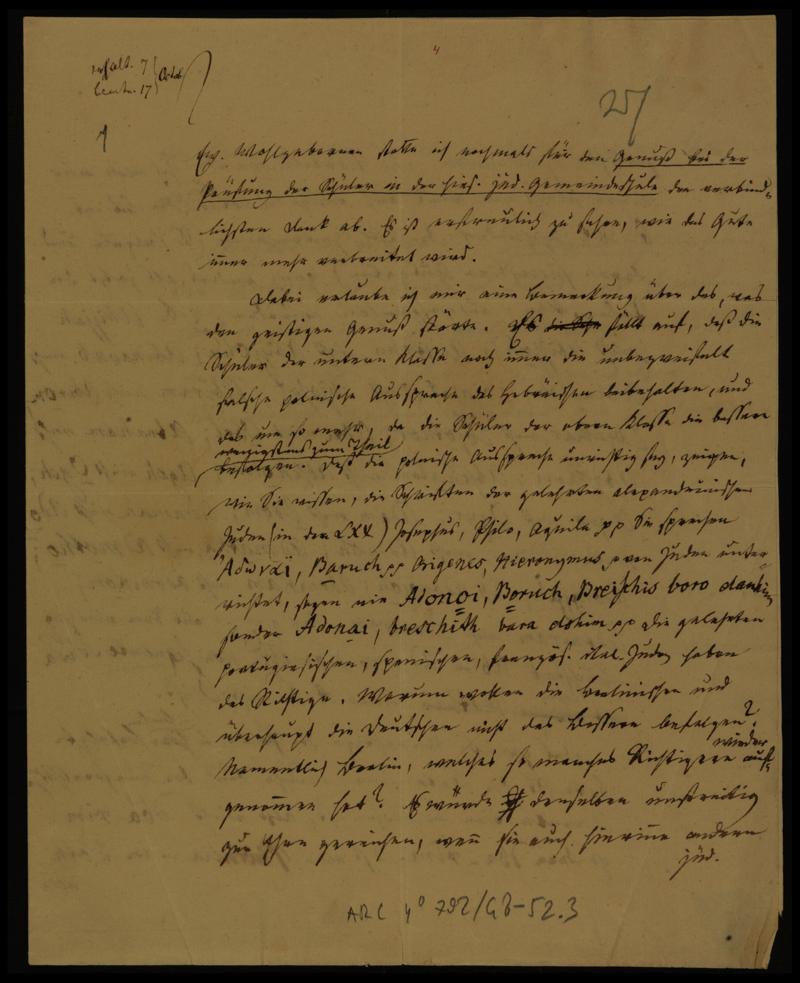 4
erhalt. 7
beantw. 17
Octob
25/
1
Ew. Wohlgeboren statte ich nochmals für den Genuß bei der
Prüfung der Schüler in der hies. jüd. Gemeindeschule den verbind-
lichsten Dank ab. Es ist erfreulich zu sehen, wie das Gute
immer mehr verbreitet wird.
Dabei erlaube ich mir eine Bemerkung über das, was
den geistigen Genuß störte. Es fällt auf, daß die
Schüler der untern Klasse noch immer die unbezweifelt
falsche polnische Aussprache des Hebräischen beibehalten, und
das um so mehr, da die Schüler der obern Klasse die bessere
wenigstens zum Theil
befolgen. Daß die polnische Aussprache unrichtig sey, zeigen,
wie Sie wissen, die Schriften der gelehrten alexandrinischen
Juden (in den LXX) Josephus, Philo, Aquila pp Sie sprechen
Ἀδωναΐ, Baruch pp Origenes, Hieronymus, von Juden unter-
richtet, sagen nie Adonoi, Boruch, Breischis boro
sondern Adonai, breschith bara elohim pp Die gelehrten
portugiesischen, spanischen, französ. ital. Juden haben
das Richtige. Warum wollen die Berlinischen und
überhaupt die Deutschen nicht das Bessere befolgen?
Namentlich Berlin, welches so manches Richtigere wieder auf-
genommen hat? Es würde denselben unstreitig
zur Ehre gereichen, wenn sie auch hierinn andern
jüd.
ARC 4° 792/G3-52.3